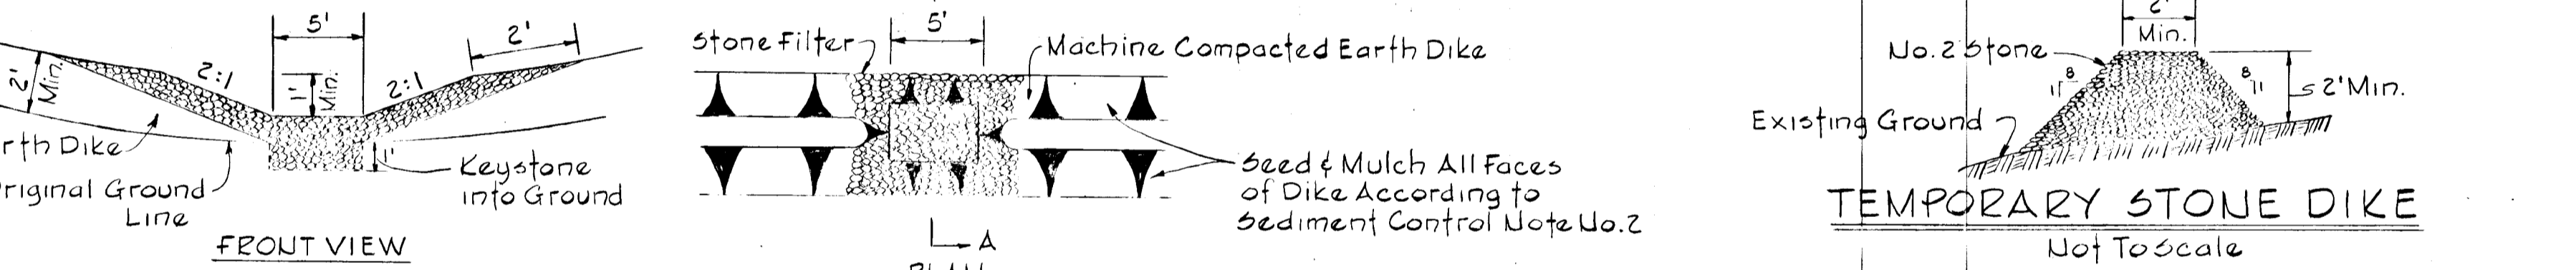 5'
2'
2' Min.
2:1
1' Min.
2:1
rth Dike
1'
Keystone
into Ground
riginal Ground
Line
FRONT VIEW
Stone Filter
5'
Machine Compacted Earth Dike
Seed & Mulch All Faces
of Dike According to
Sediment Control Note No.2
A
PLAN
2'
Min.
No.2 Stone
8
8
2' Min.
Existing Ground
TEMPORARY STONE DIKE
Not To Scale